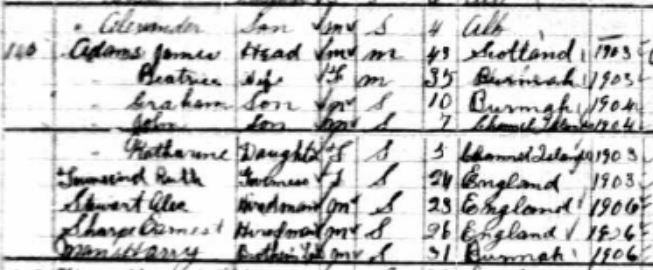 " Alexander Son m S 4 Alb
Adams James Head m m 43 Scotland 1903
Beatrice Wife F m 35 Burmah 1903
" Graham Son m S 10 Burmah 1904
" John Son m S 7 Channel Islands 1904
" Katharine Daughter F S 5 Channel Islands 1903
Townsend Ruth F S 24 England 1903
Stewart Alec Hiredman m S 23 England 1906
Sharpe Ernest Hiredman m S 26 England
Harry Brother in Law m S 31 Burmah 1906